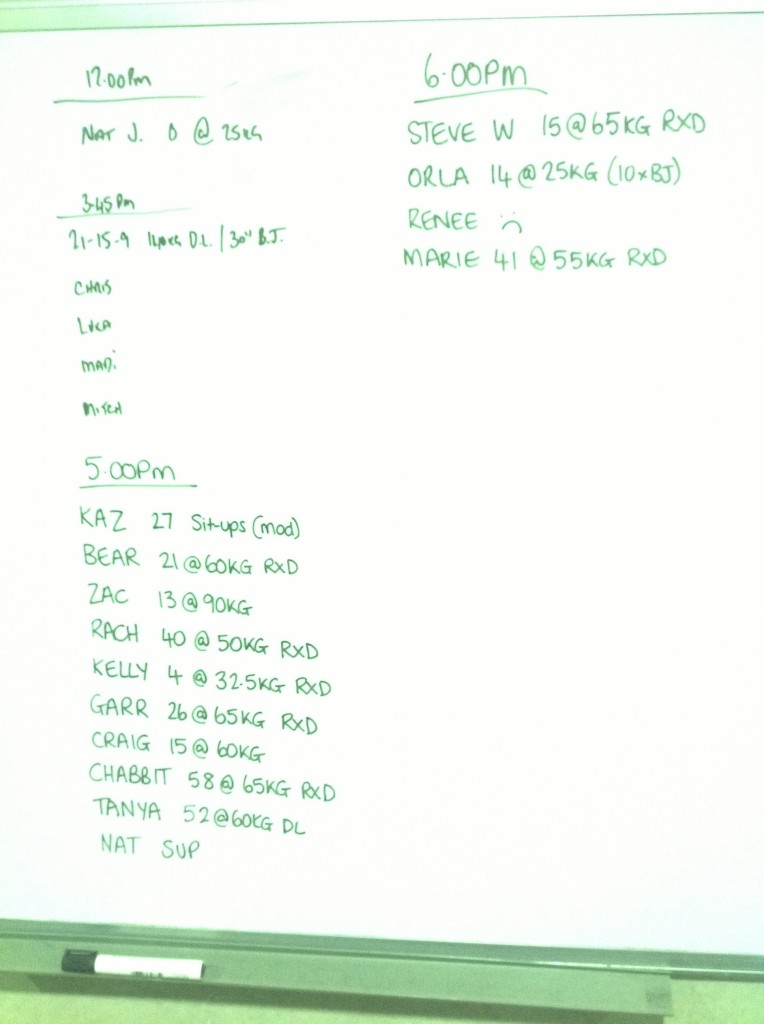 12.00Pm
NAT J. 0 @ 25KG
3.45Pm
21-15-9 140KG D.L. / 30" B.J.
CHRIS
LUCA
MADi
MITCH
5.00Pm
KAZ 27 Sit-ups (mod)
BEAR 21 @ 60KG RXD
ZAC 13 @ 90KG
RACH 40 @ 50KG RXD
KELLY 4 @ 32.5KG RXD
GARR 26 @ 65KG RXD
CRAIG 15 @ 60KG
CHABBIT 58 @ 65KG RXD
TANYA 52 @ 60KG DL
NAT SUP
6.00Pm
STEVE W 15 @ 65KG RXD
ORLA 14 @ 25KG (10xBJ)
RENEE :(
MARIE 41 @ 55KG RXD